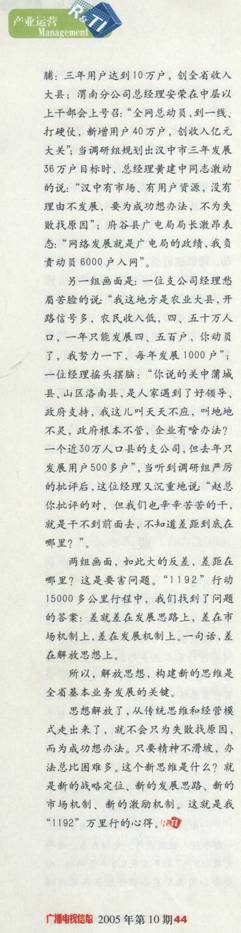 产业运营
Management
R&TI
脯：三年用户达到10万户，创全省收入
大县；渭南分公司总经理安荣在中层以
上干部会上号召：“全网总动员，到一线、
打硬仗，新增用户40万户，创收入亿元
大关”；当调研组规划出汉中市三年发展
36万户目标时，总经理黄建中同志激动
的说：“汉中有市场、有用户资源，没有
理由不发展，要为成功想办法，不为失
败找原因”；府谷县广电局局长激昂表
态：“网络发展就是广电局的政绩，我负
责动员6000户入网”。
另一组画面是：一位支公司经理愁
眉苦脸的说“我这地方是农业大县，开
路信号多，农民收入低，四、五十万人
口，一年只能发展四、五百户，你动员
了，我努力一下，每年发展1000户”；
一位经理摇头摆脑：“你说的关中蒲城
县、山区洛南县，是人家遇到了好领导、
政府支持，我这儿叫天天不应，叫地地
不灵，政府根本不管，企业有啥办法？
一个近30万人口县的支公司，但去年只
发展用户500多户”，当听到调研组严厉
的批评后，这位经理又沉重地说：“赵总
你批评的对，但我们也辛辛苦苦的干，
就是干不到前面去，不知道差距到底在
哪里？”。
两组画面，如此大的反差，差距在
哪里？这是要害问题。“1192”行动
15000多公里行程中，我们找到了问题
的答案：差就差在发展思路上，差在市
场机制上，差在发展机制上。一句话，差
在解放思想上。
所以，解放思想，构建新的思维是
全省基本业务发展的关键。
思想解放了，从传统思维和经营模
式走出来了，就不会只为失败找原因，
而为成功想办法。只要精神不滑坡，办
法总比困难多。这个新思维是什么？就
是新的战略定位、新的发展思路、新的
市场机制、新的激励机制。这就是我
“1192”万里行的心得。R&TI
广播电视信息 2005年第10期44